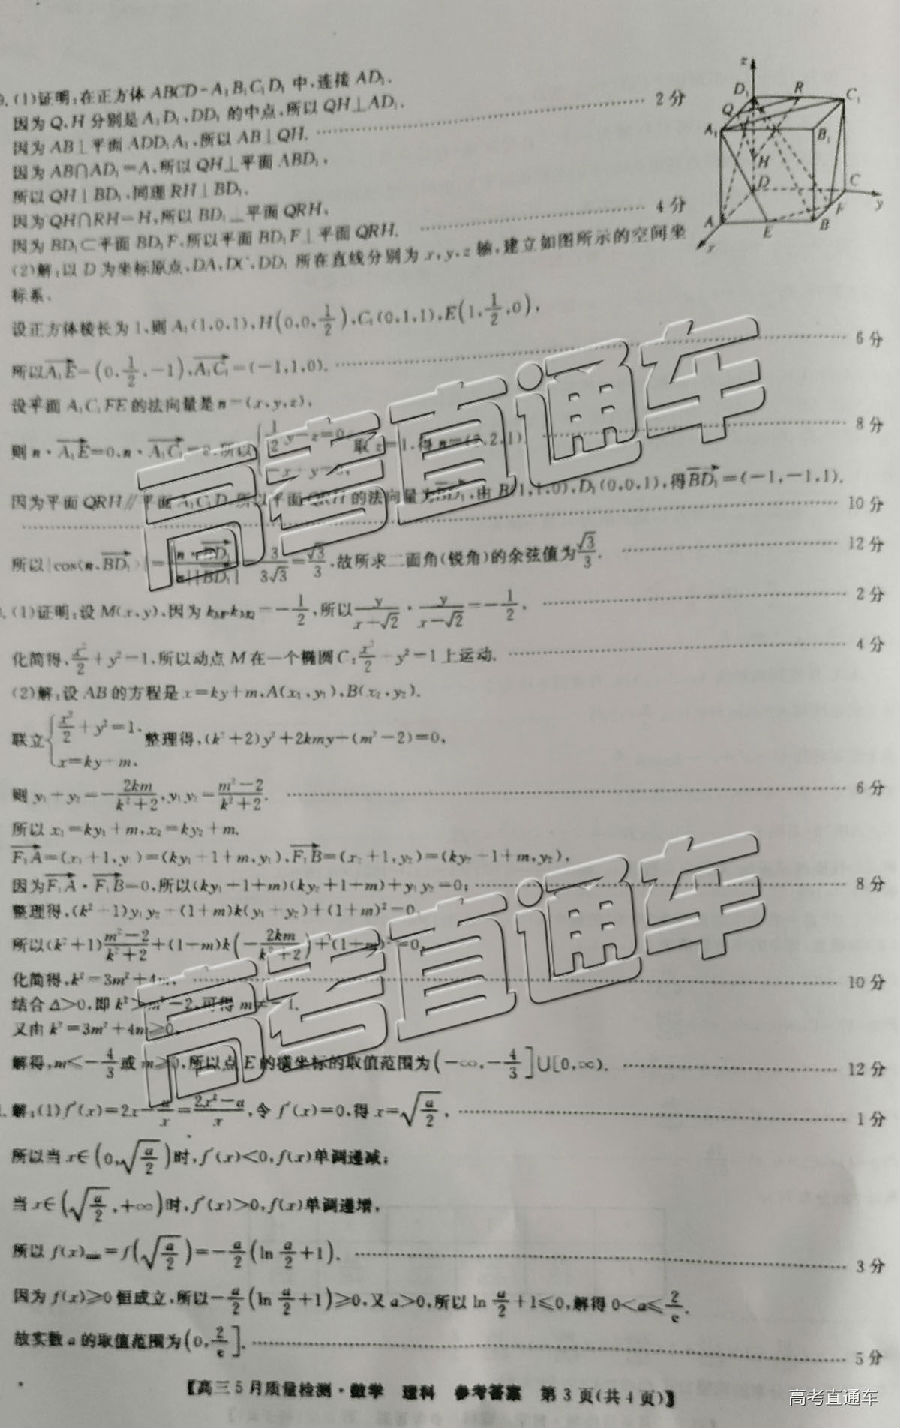 (1)证明:在正方体 ABCD-A₁B₁C₁D₁ 中,连接 AD₁.
因为 Q,H 分别是 A₁D₁,DD₁ 的中点,所以 QH⊥AD₁.
因为 AB⊥平面 ADD₁A₁,所以 AB⊥QH. 2分
因为 AB∩AD₁=A,所以 QH⊥平面 ABD₁,
所以 QH⊥BD₁,同理 RH⊥BD₁,
因为 QH∩RH=H,所以 BD₁⊥平面 QRH,
因为 BD₁⊂平面 BD₁F,所以平面 BD₁F⊥平面 QRH. 4分
(2)解:以 D 为坐标原点,DA,DC,DD₁ 所在直线分别为 x,y,z 轴,建立如图所示的空间坐
标系,
设正方体棱长为 1,则 A₁(1,0,1),H(0,0,1/2),C₁(0,1,1),E(1,1/2,0),
所以A₁E=(0,1/2,-1),A₁C₁=(-1,1,0). 6分
设平面 A₁C₁FE 的法向量是 n=(x,y,z),
则 n·A₁E=0,n·A₁C₁=0,所以{1/2 y-z=0, -x+y=0, 取 z=1,得 n=(2,2,1). 8分
因为平面 QRH∥平面 A₁C₁D,所以平面 QRH 的法向量为BD₁,由 B(1,1,0),D₁(0,0,1),得BD₁=(-1,-1,1).
10分
所以|cos⟨n,BD₁⟩|=|n·BD₁|/|n||BD₁|=3/3√3=√3/3,故所求二面角(锐角)的余弦值为√3/3. 12分
(1)证明:设 M(x,y),因为 k·k=-1/2,所以 y/(x+√2)·y/(x-√2)=-1/2, 2分
化简得,x²/2+y²=1,所以动点 M 在一个椭圆 C:x²/2+y²=1 上运动. 4分
(2)解:设 AB 的方程是 x=ky+m,A(x₁,y₁),B(x₂,y₂).
联立{x²/2+y²=1, x=ky+m, 整理得,(k²+2)y²+2kmy+(m²-2)=0,
则 y₁+y₂=-2km/(k²+2),y₁y₂=(m²-2)/(k²+2). 6分
所以 x₁=ky₁+m,x₂=ky₂+m,
F₁A=(x₁+1,y₁)=(ky₁+1+m,y₁),F₁B=(x₂+1,y₂)=(ky₂+1+m,y₂),
因为F₁A·F₁B=0,所以(ky₁+1+m)(ky₂+1+m)+y₁y₂=0; 8分
整理得,(k²+1)y₁y₂+(1+m)k(y₁+y₂)+(1+m)²=0,
所以(k²+1)(m²-2)/(k²+2)+(1+m)k(-2km/(k²+2))+(1+m)²=0,
化简得,k²=3m²+4m, 10分
结合 Δ>0,即 k²>m²-2,可得 m≠-1.
又由 k²=3m²+4m≥0,
解得,m<-4/3或 m≥0,所以点 E 的横坐标的取值范围为(-∞,-4/3]∪[0,∞). 12分
解:(1)f′(x)=2x-a/x=(2x²-a)/x,令 f′(x)=0,得 x=√(a/2), 1分
所以当 x∈(0,√(a/2))时,f′(x)<0,f(x)单调递减;
当 x∈(√(a/2),+∞)时,f′(x)>0,f(x)单调递增,
所以 f(x)min=f(√(a/2))=-a/2(ln a/2+1). 3分
因为 f(x)≥0 恒成立,所以-a/2(ln a/2+1)≥0,又 a>0,所以 ln a/2+1≤0,解得 0<a≤2/e.
故实数 a 的取值范围为(0,2/e]. 5分
【高三5月质量检测·数学 理科 参考答案 第3页(共4页)】
z
D₁ R C₁
Q
A₁ B₁
H
D C
y
A E B F
x
高考直通车
高考直通车
高考直通车